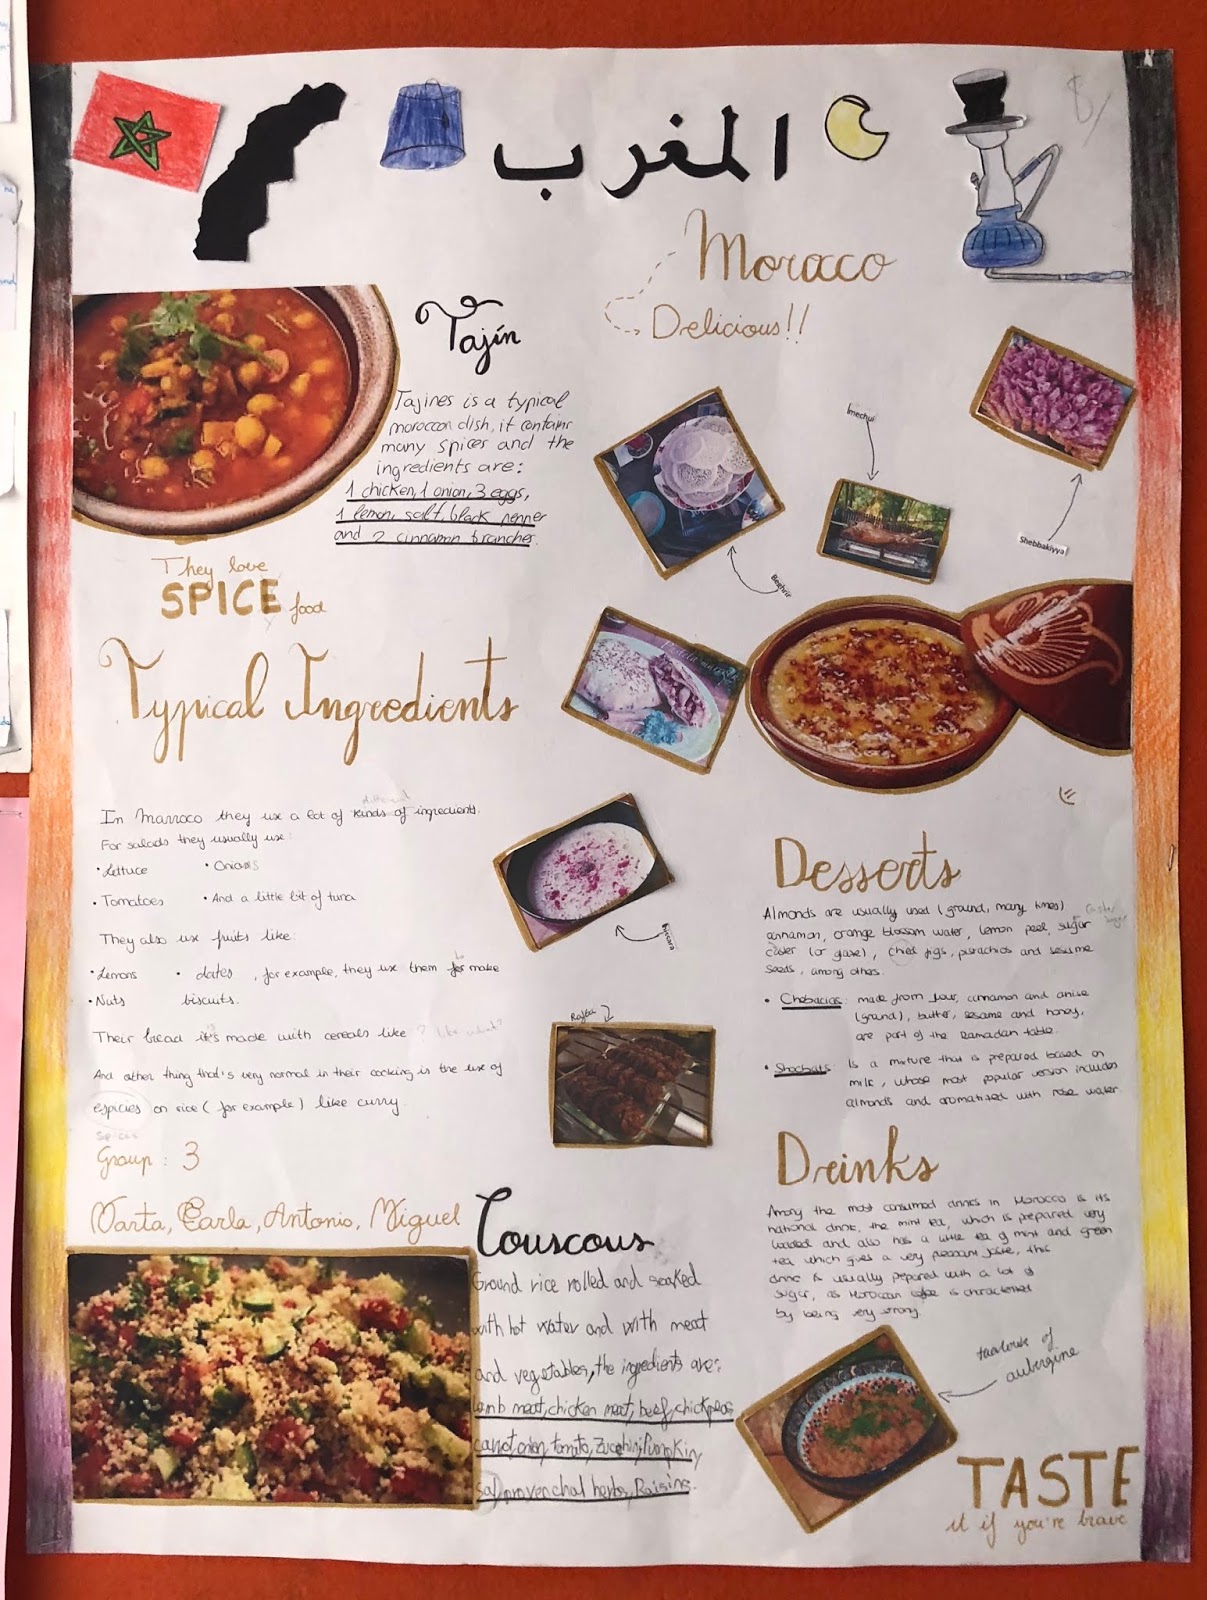 المغرب
Morocco
Delicious!!
Tajín
Tajines is a typical
moroccan dish, it contains
many spices and the
ingredients are:
1 chicken, 1 onion, 3 eggs,
1 lemon, salt, black pepper
and 2 cinnamon branches.
They love
SPICE food
Imechui
Shebbakiyya
Beghrir
Typical Ingredients
In Marroco they use a lot of kinds of ingredients.
different
For salads they usually use:
• Lettuce • Onions
• Tomatoes • And a little bit of tuna
They also use fruits like:
• Lemons • dates, for example, they use them for make
to
• Nuts biscuits.
Their bread it's made with cereals like ? like what?
And other thing that's very normal in their cooking is the use of
especies on rice (for example) like curry.
spices
Group: 3
Marta, Carla, Antonio, Miguel
Biccara
Desserts
Almonds are usually used (ground, many times)
cinnamon, orange blossom water, lemon peel, sugar
caster sugar
caster (or glase), dried figs, pistachios and sesame
seeds, among others.
• Chebacias: made from flour, cinnamon and anise
(ground), butter, sesame and honey,
are part of the Ramadan table.
• Shochats: Is a mixture that is prepared based on
milk, whose most popular version includes
almonds and aromatized with rose water.
Drinks
Among the most consumed drinks in Morocco is its
national drink, the mint tea, which is prepared very
loaded and also has a little tea of mint and green
tea which gives a very pleasant taste, this
drink is usually prepared with a lot of
sugar, as Moroccan coffee is characterised
by being very strong.
Couscous
Ground rice rolled and soaked
with hot water and with meat
and vegetables, the ingredients are:
lamb meat, chicken meat, beef, chickpeas
carrot, onion, tomato, zucchini, Pumpkin,
salt, provenchal herbs, Raisins.
taalouk of
aubergine
TASTE
it if you're brave